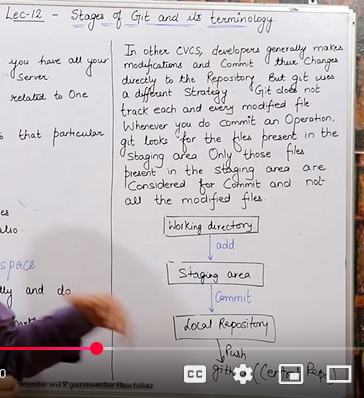 Lec-12 - Stages of Git and its terminology
you have all your
Server
related to One
that particular
es.
also.
space
lly and do
In other CVCS, developers generally makes
modifications and Commit their Changes
directly to the Repository. But git uses
a different Strategy. Git does not
track each and every modified file
Whenever you do commit an Operation,
git looks for the files present in the
Staging area. Only those files
present in the staging area are
Considered for Commit and not
all the modified files.
Working directory
add
Staging area
Commit
Local Repository
Push
github (Central Repo)
0
CC
remember and if you remember then follow